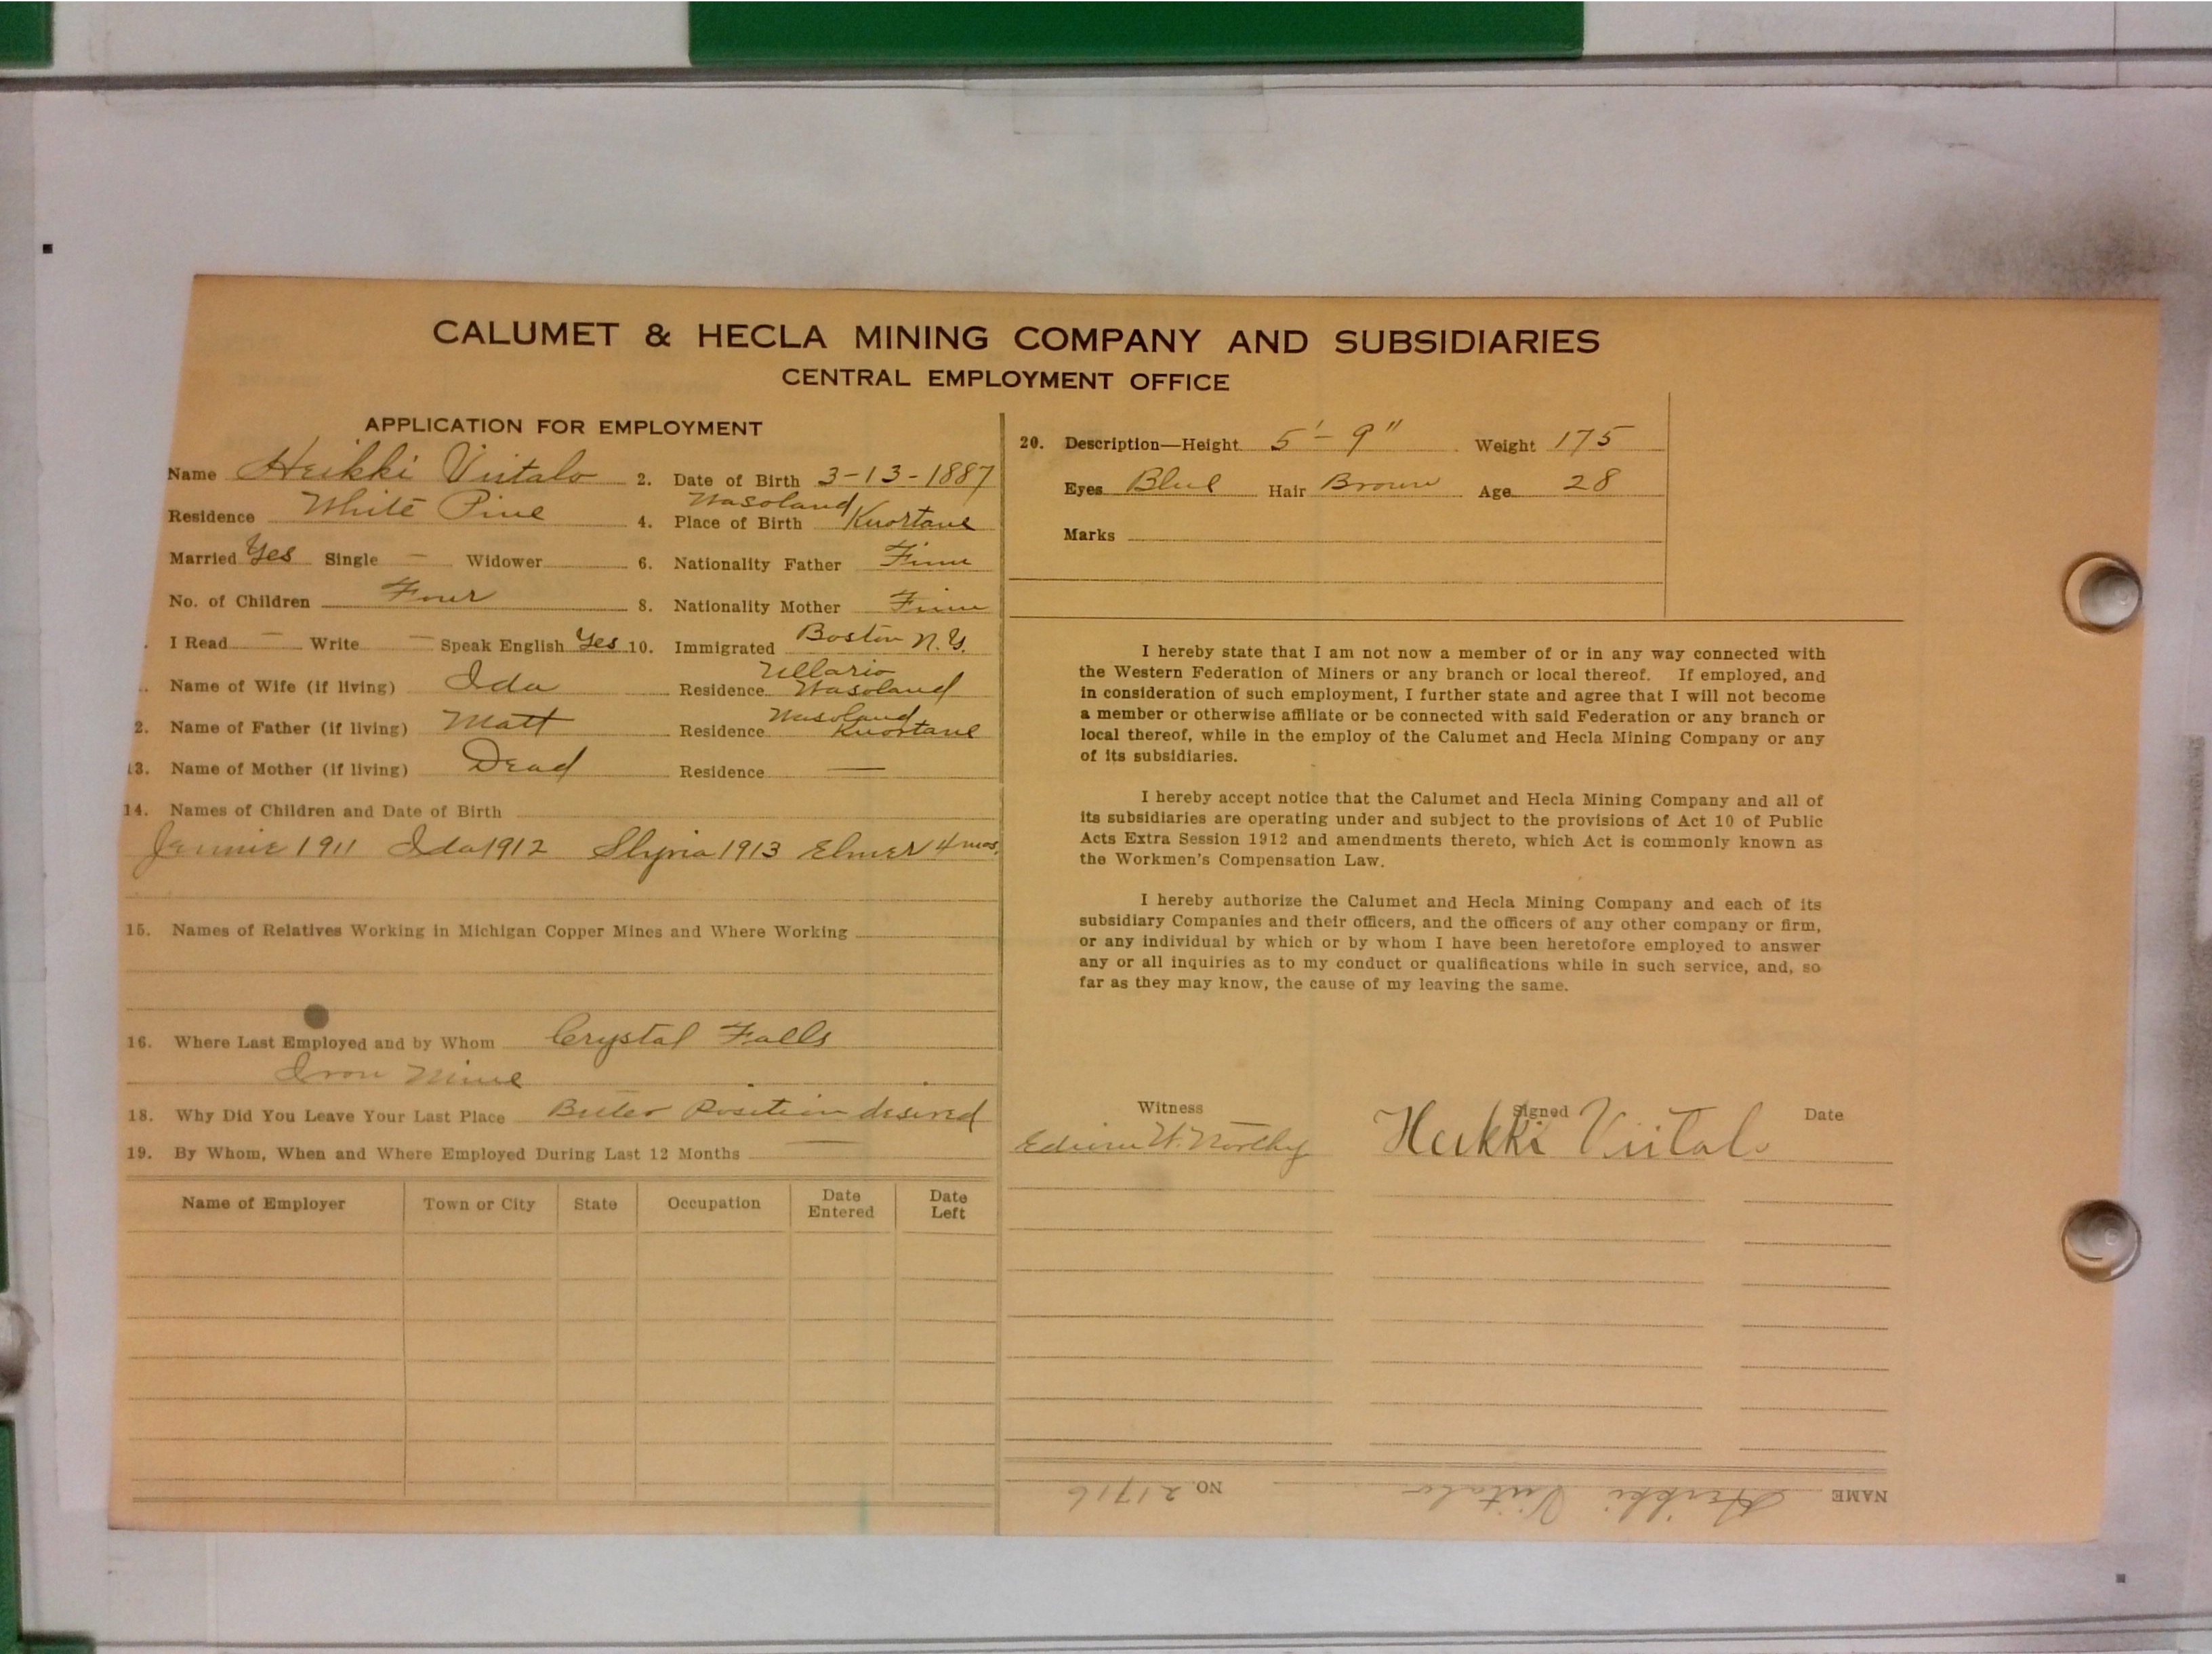 CALUMET & HECLA MINING COMPANY AND SUBSIDIARIES
CENTRAL EMPLOYMENT OFFICE
APPLICATION FOR EMPLOYMENT
Name Heikki Viitalo 2. Date of Birth 3-13-1887
Residence White Pine 4. Place of Birth Wasoland Kuortane
Married Yes Single — Widower 6. Nationality Father Finn
No. of Children Four 8. Nationality Mother Finn
I Read — Write — Speak English Yes 10. Immigrated Boston N.Y.
Name of Wife (if living) Ida Residence Ullario Wasoland
2. Name of Father (if living) Matt Residence Wasoland Kuortane
13. Name of Mother (if living) Dead Residence —
14. Names of Children and Date of Birth
Jennie 1911 Ida 1912 1913 Elmer 4 mos.
15. Names of Relatives Working in Michigan Copper Mines and Where Working
16. Where Last Employed and by Whom Crystal Falls
Iron Mine
18. Why Did You Leave Your Last Place Better Position desired
19. By Whom, When and Where Employed During Last 12 Months —
Name of Employer Town or City State Occupation Date Entered Date Left
20. Description—Height 5'-9" Weight 175
Eyes Blue Hair Brown Age 28
Marks
I hereby state that I am not now a member of or in any way connected with
the Western Federation of Miners or any branch or local thereof. If employed, and
in consideration of such employment, I further state and agree that I will not become
a member or otherwise affiliate or be connected with said Federation or any branch or
local thereof, while in the employ of the Calumet and Hecla Mining Company or any
of its subsidiaries.
I hereby accept notice that the Calumet and Hecla Mining Company and all of
its subsidiaries are operating under and subject to the provisions of Act 10 of Public
Acts Extra Session 1912 and amendments thereto, which Act is commonly known as
the Workmen's Compensation Law.
I hereby authorize the Calumet and Hecla Mining Company and each of its
subsidiary Companies and their officers, and the officers of any other company or firm,
or any individual by which or by whom I have been heretofore employed to answer
any or all inquiries as to my conduct or qualifications while in such service, and, so
far as they may know, the cause of my leaving the same.
Witness Signed Date
Edwin W. Northey Heikki Viitalo
NAME Heikki Viitalo NO. 21716